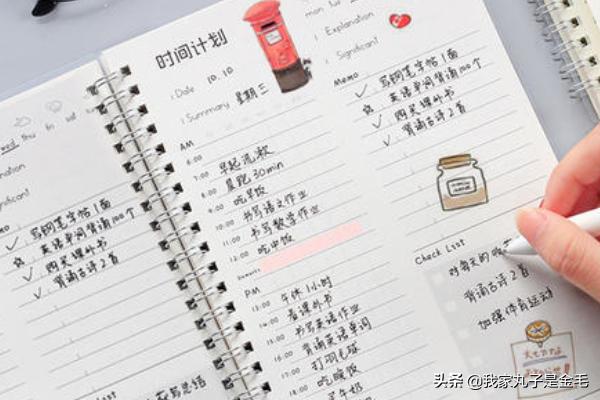 thu
fri
sat
nation
Significant
写钢笔字帖1面
英语单词背诵100个
购买课外书
背诵古诗2首
时间计划
Date 10.10
Summary 星期三
AM
6:00
7:00 早起洗漱
8:00 晨跑30min
9:00 吃早饭
10:00 书写语文作业
11:00 书写数学作业
12:00 吃中饭
PM
13:00 午休1小时
14:00 看课外书
15:00 书写英语作业
16:00 背诵英语单词
17:00 打羽毛球
吃晚饭
18:00
mon
Explanation
Significant
Memo
写钢笔字帖1面
英语单词背诵100个
购买课外书
背诵古诗2首
Check List
对每天的
背诵古诗2首
加强体育运动
头条 @我家丸子是金毛